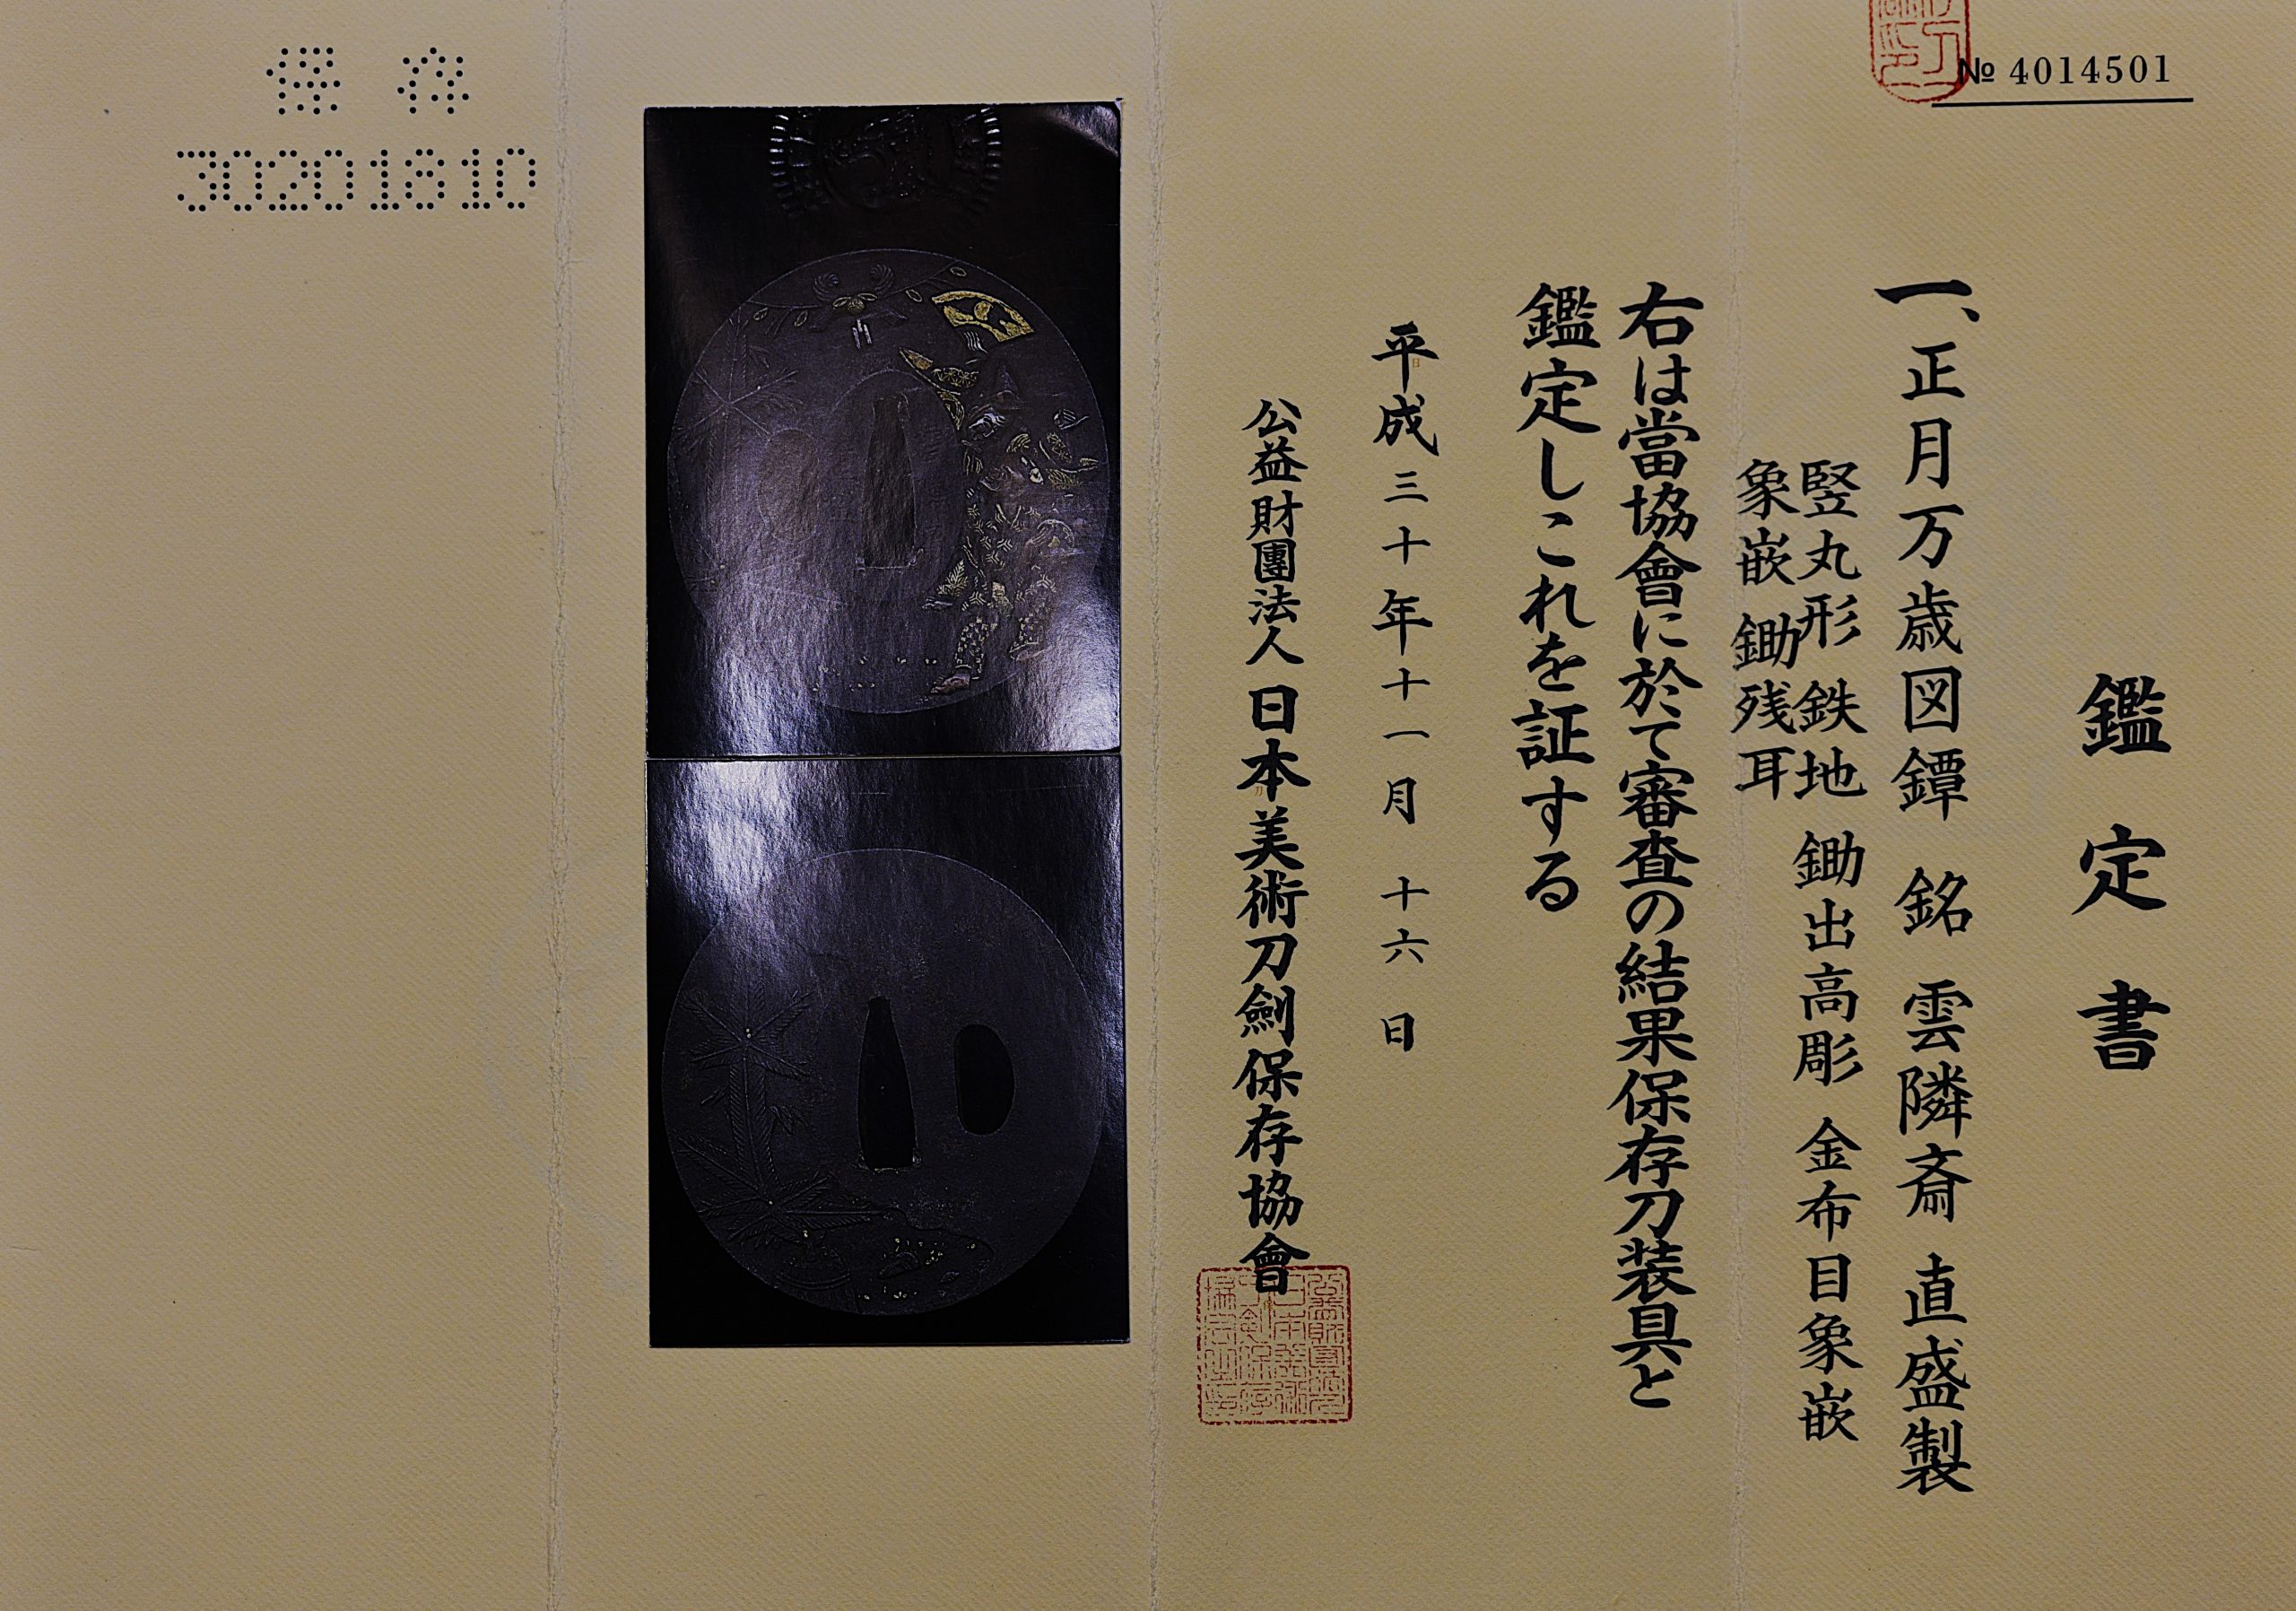 № 4014501
鑑定書
一、正月万歳図鐔 銘 雲隣斎 直盛製
竪丸形 鉄地 鋤出高彫 金布目象嵌
象嵌 鋤残耳
右は當協會に於て審査の結果保存刀装具と
鑑定しこれを証する
平成三十年十一月十六日
公益財團法人 日本美術刀劍保存協會
保存
30201810